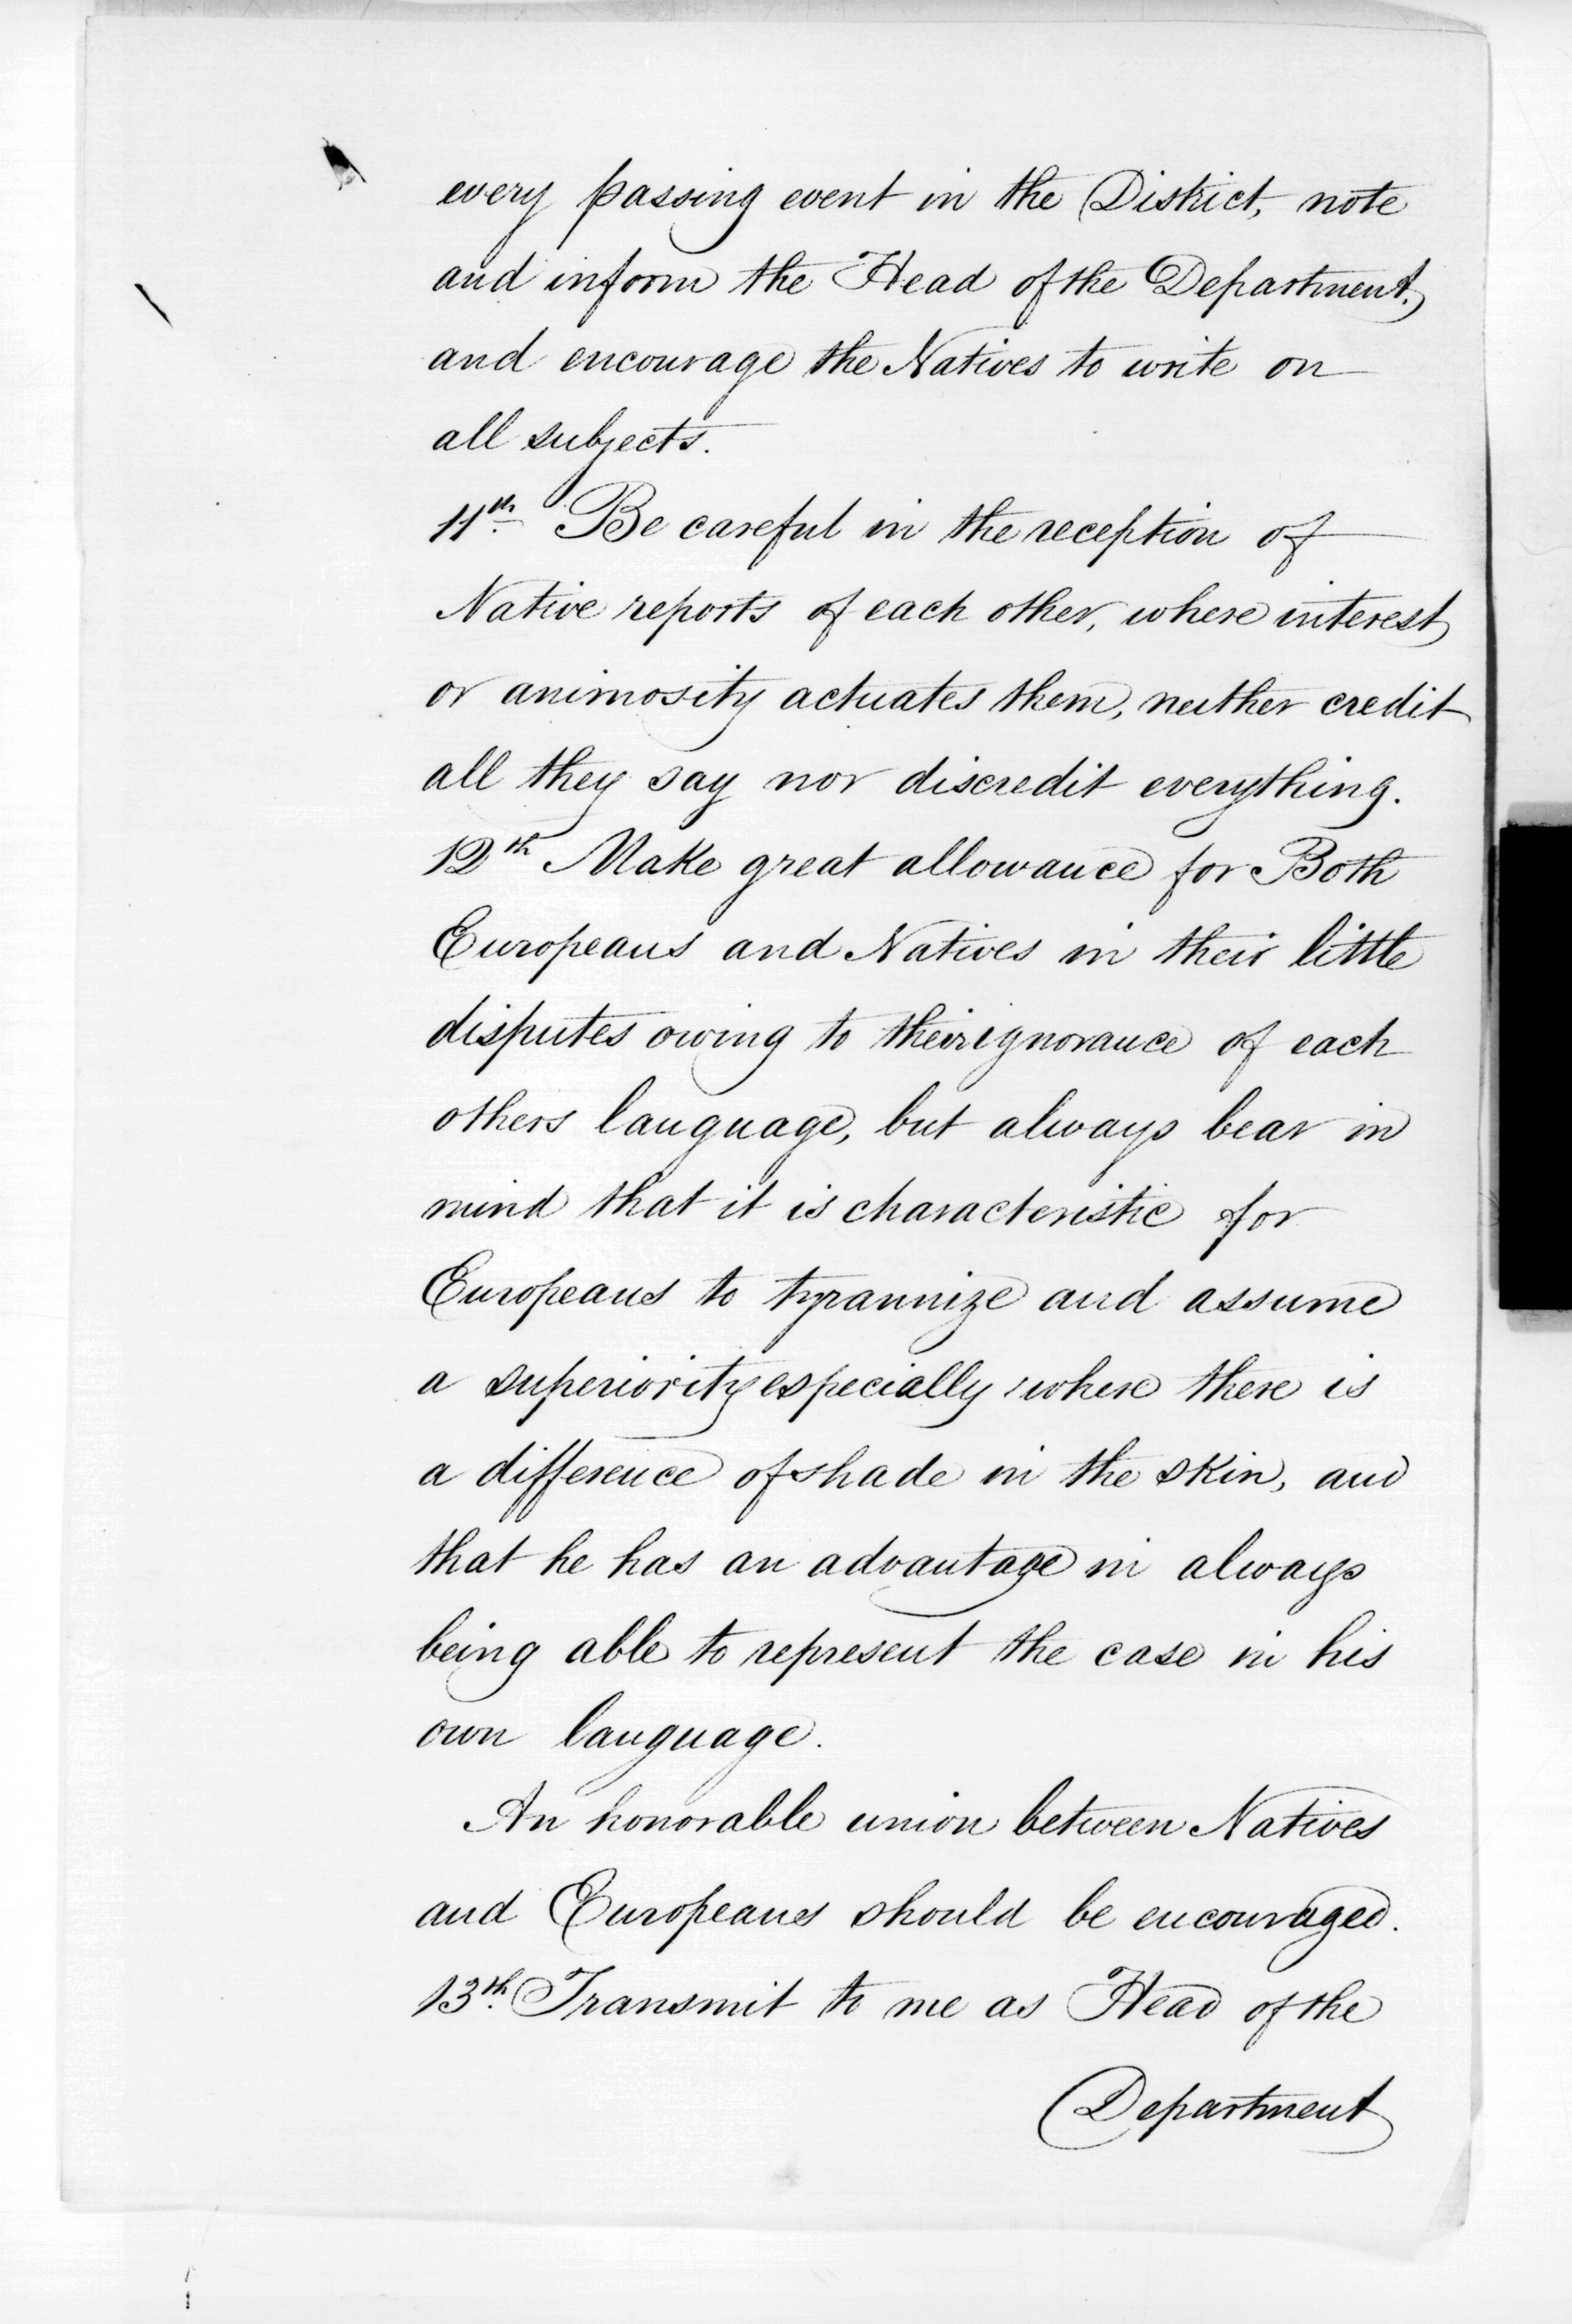 every passing event in the District, note
and inform the Head of the Department,
and encourage the Natives to write on
all subjects.
11th. Be careful in the reception of
Native reports of each other, where interest
or animosity actuates them, neither credit
all they say nor discredit everything.
12th Make great allowance for Both
Europeans and Natives in their little
disputes owing to their ignorance of each
others language, but always bear in
mind that it is characteristic for
Europeans to tyrannize and assume
a superiority especially where there is
a difference of shade in the skin, and
that he has an advantage in always
being able to represent the case in his
own language.
An honorable union between Natives
and Europeans should be encouraged.
13th. Transmit to me as Head of the
Department